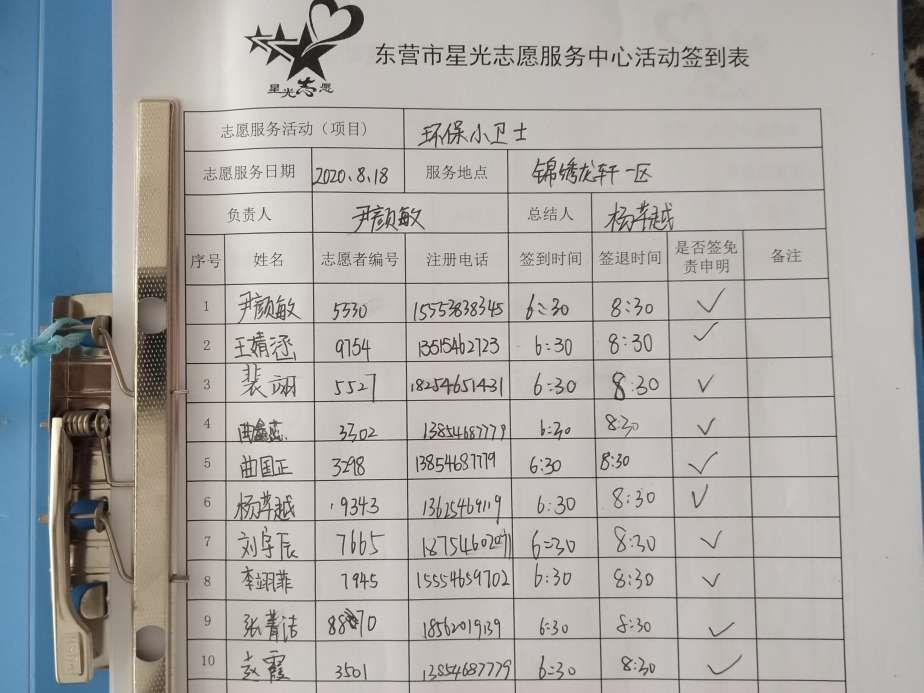 星光志愿
东营市星光志愿服务中心活动签到表
志愿服务活动（项目） 环保小卫士
志愿服务日期 2020.8.18 服务地点 锦绣龙轩一区
负责人 尹颜敏 总结人 杨菁越
序号 姓名 志愿者编号 注册电话 签到时间 签退时间 是否签免责申明 备注
1 尹颜敏 5530 15553838345 6:30 8:30 ✓
2 王婧涵 9754 13515462723 6:30 8:30 ✓
3 裴翊 5527 18254651431 6:30 8:30 ✓
4 3302 13854687779 6:30 8:30 ✓
5 曲国正 3298 13854687779 6:30 8:30 ✓
6 杨菁越 9343 6:30 8:30 ✓
7 刘宇辰 7665 6:30 8:30 ✓
8 李翊菲 7945 15554659702 6:30 8:30 ✓
9 张菁洁 18562019139 6:30 8:30 ✓
10 赵霞 3501 13854687779 6:30 8:30 ✓